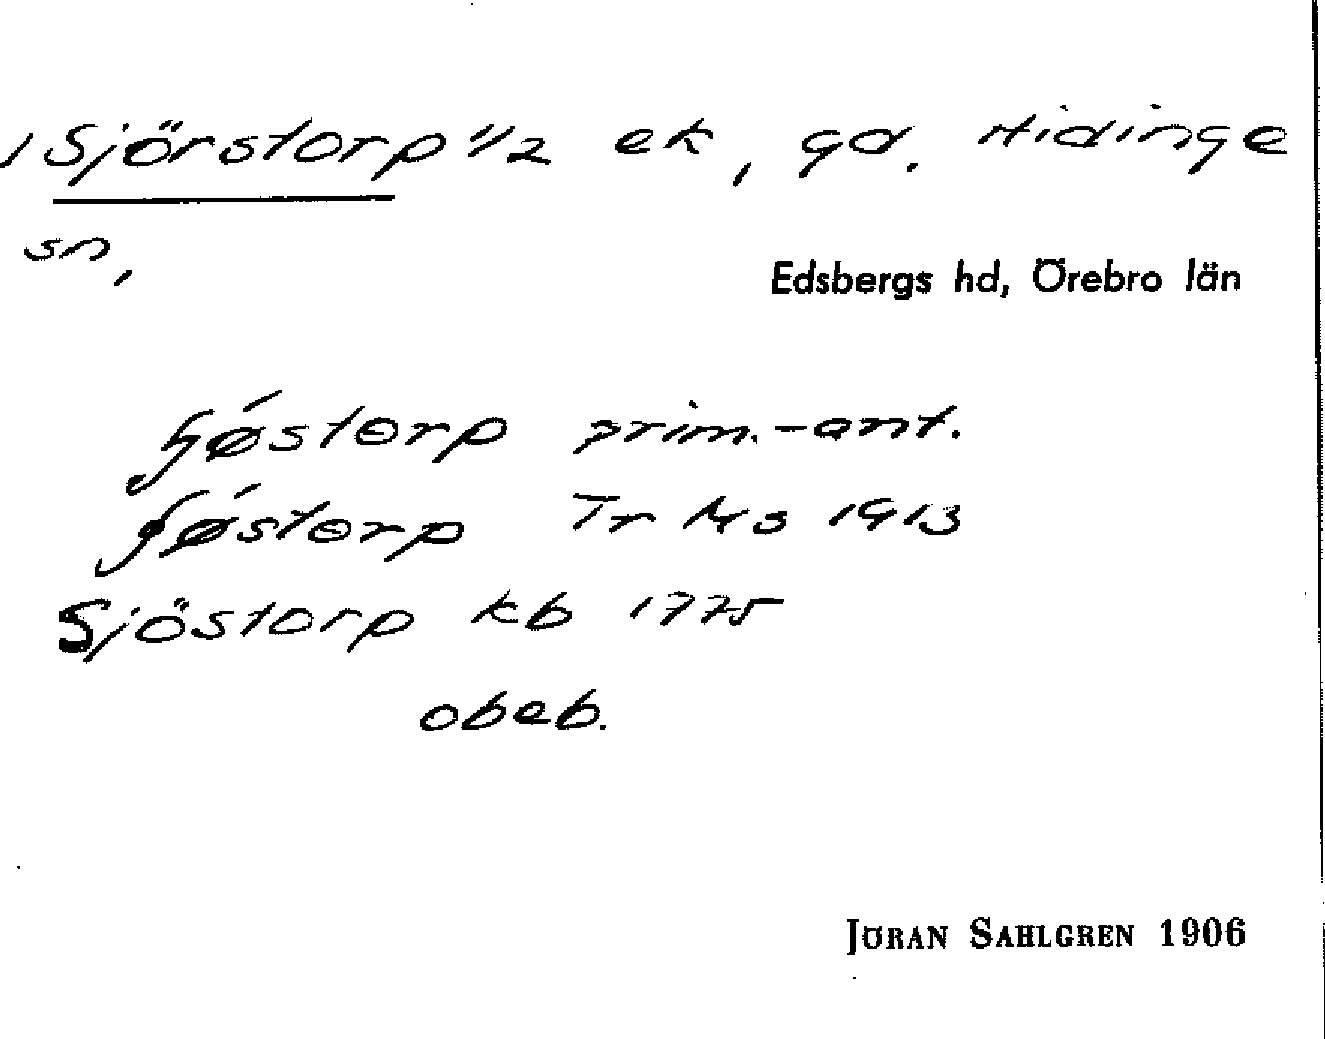 Sjörstorp 1/2 ek, gd. Hidinge
sn,
Edsbergs hd, Örebro län
prim.-ant.
Tr Ms 1913
Sjöstorp kb 1775
obeb.
JÖRAN SAHLGREN 1906